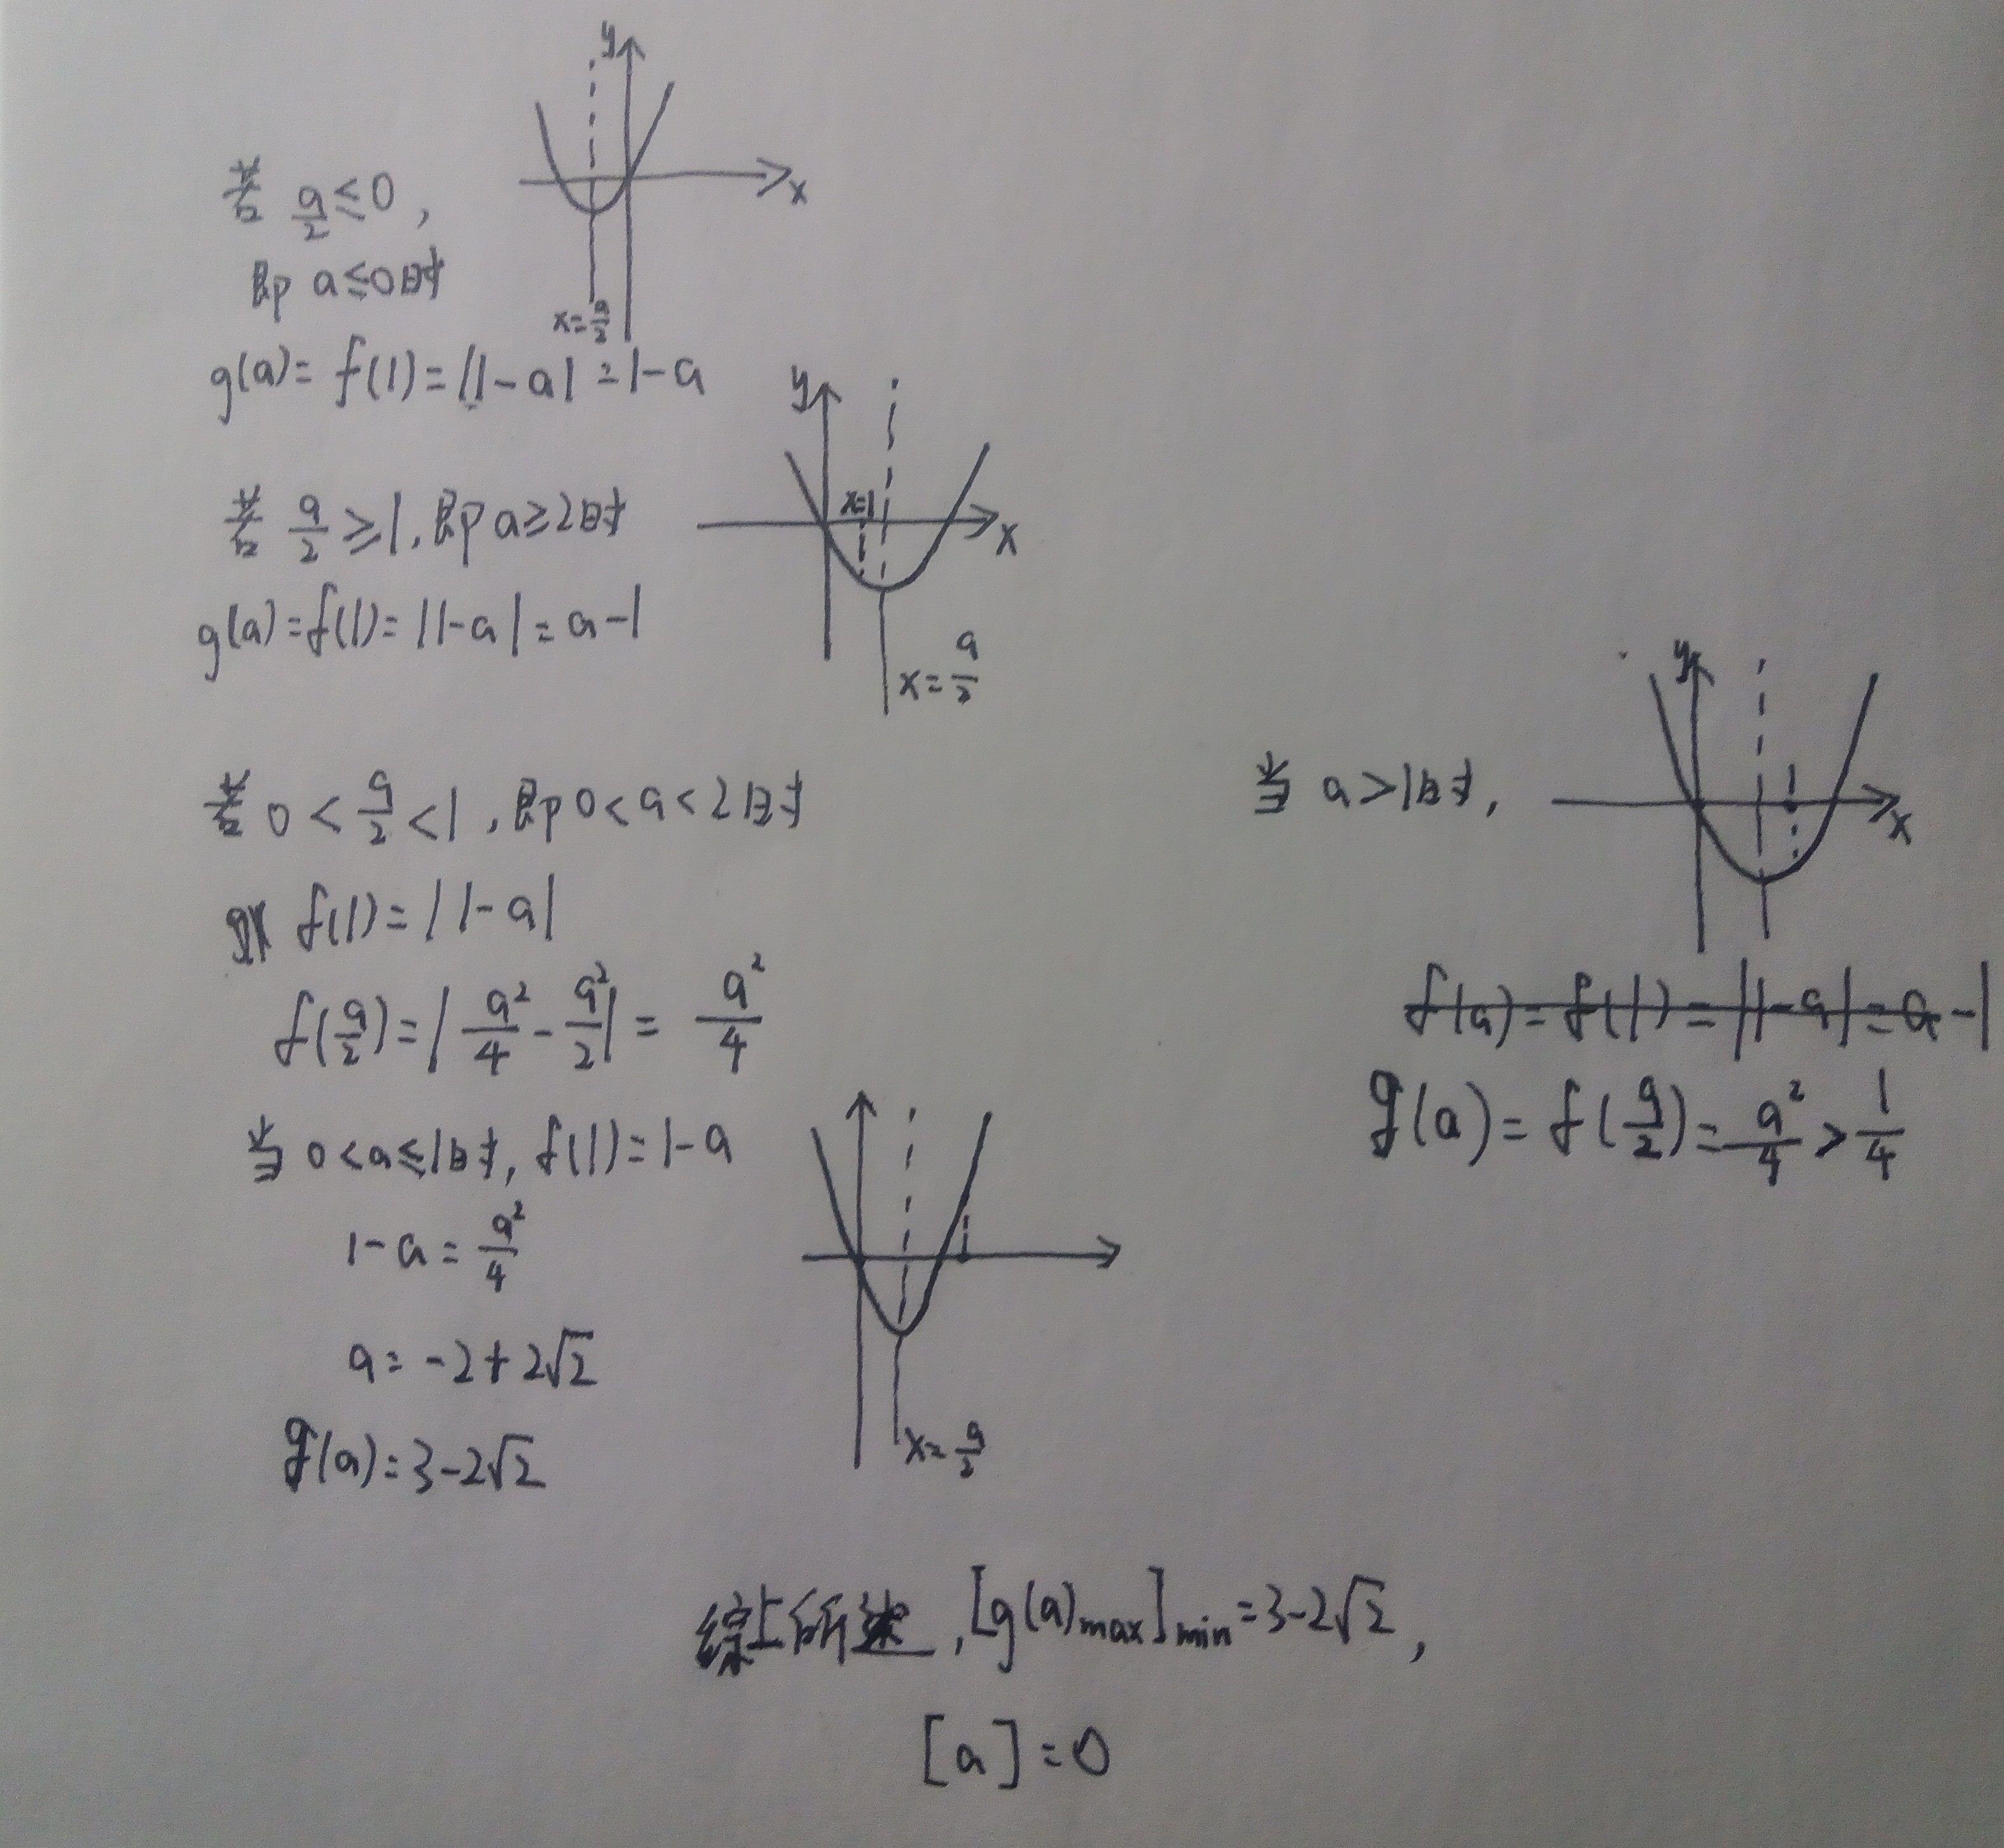 y
x
若 a/2 ≤ 0,
即 a ≤ 0时
x = a/2
g(a) = f(1) = |1-a| = 1-a
y
x=1
x
若 a/2 ≥ 1, 即 a ≥ 2时
g(a) = f(1) = |1-a| = a-1
x = a/2
若 0 < a/2 < 1, 即 0 < a < 2时
f(1) = |1-a|
f(a/2) = |a²/4 - a²/2| = a²/4
当 0 < a ≤ 1时, f(1) = 1-a
1-a = a²/4
a = -2+2√2
x = a/2
g(a) = 3-2√2
y
当 a > 1时,
1
x
f(a) = f(1) = |1-a| = a-1
g(a) = f(a/2) = a²/4 > 1/4
综上所述, [g(a)max]min = 3-2√2,
[a] = 0